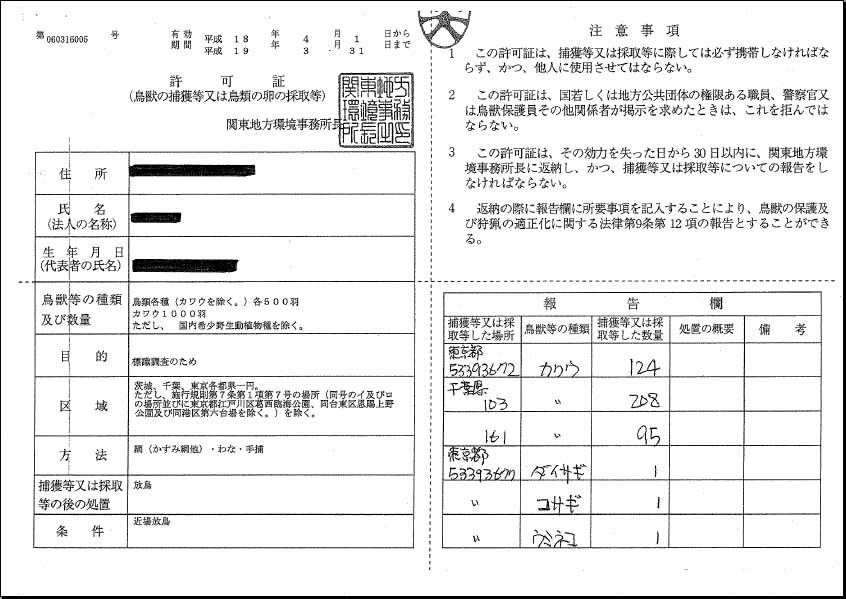 第 060316005 号
有効期間 平成 18 年 4 月 1 日から
平成 19 3 月 31 日まで
許可証
(鳥獣の捕獲等又は鳥類の卵の採取等)
関東地方環境事務所長
住所
氏名
(法人の名称)
生年月日
(代表者の氏名)
鳥獣等の種類
及び数量
鳥類各種(カワウを除く。)各500羽
カワウ1000羽
ただし、国内希少野生動植物種を除く。
目的
標識調査のため
区域
茨城、千葉、東京各都県一円。
ただし、施行規則第7条第1項第7号の場所(同号のイ及びロ
の場所並びに東京都江戸川区葛西臨海公園、同台東区恩賜上野
公園及び同港区第六台場を除く。)を除く。
方法
網(かすみ網他)・わな・手捕
捕獲等又は採取
等の後の処置
放鳥
条件
近場放鳥
注意事項
1 この許可証は、捕獲等又は採取等に際しては必ず携帯しなければな
らず、かつ、他人に使用させてはならない。
2 この許可証は、国若しくは地方公共団体の権限ある職員、警察官又
は鳥獣保護員その他関係者が掲示を求めたときは、これを拒んでは
ならない。
3 この許可証は、その効力を失った日から30日以内に、関東地方環
境事務所長に返納し、かつ、捕獲等又は採取等についての報告をし
なければならない。
4 返納の際に報告欄に所要事項を記入することにより、鳥獣の保護及
び狩猟の適正化に関する法律第9条第12項の報告とすることができ
る。
報告欄
捕獲等又は採
取等した場所
鳥獣等の種類
捕獲等又は採
取等した数量
処置の概要
備考
東京都
53393672 カワウ 124
千葉県
103 〃 208
161 〃 95
東京都
53393677 ダイサギ 1
〃 コサギ 1
〃 ウミネコ 1